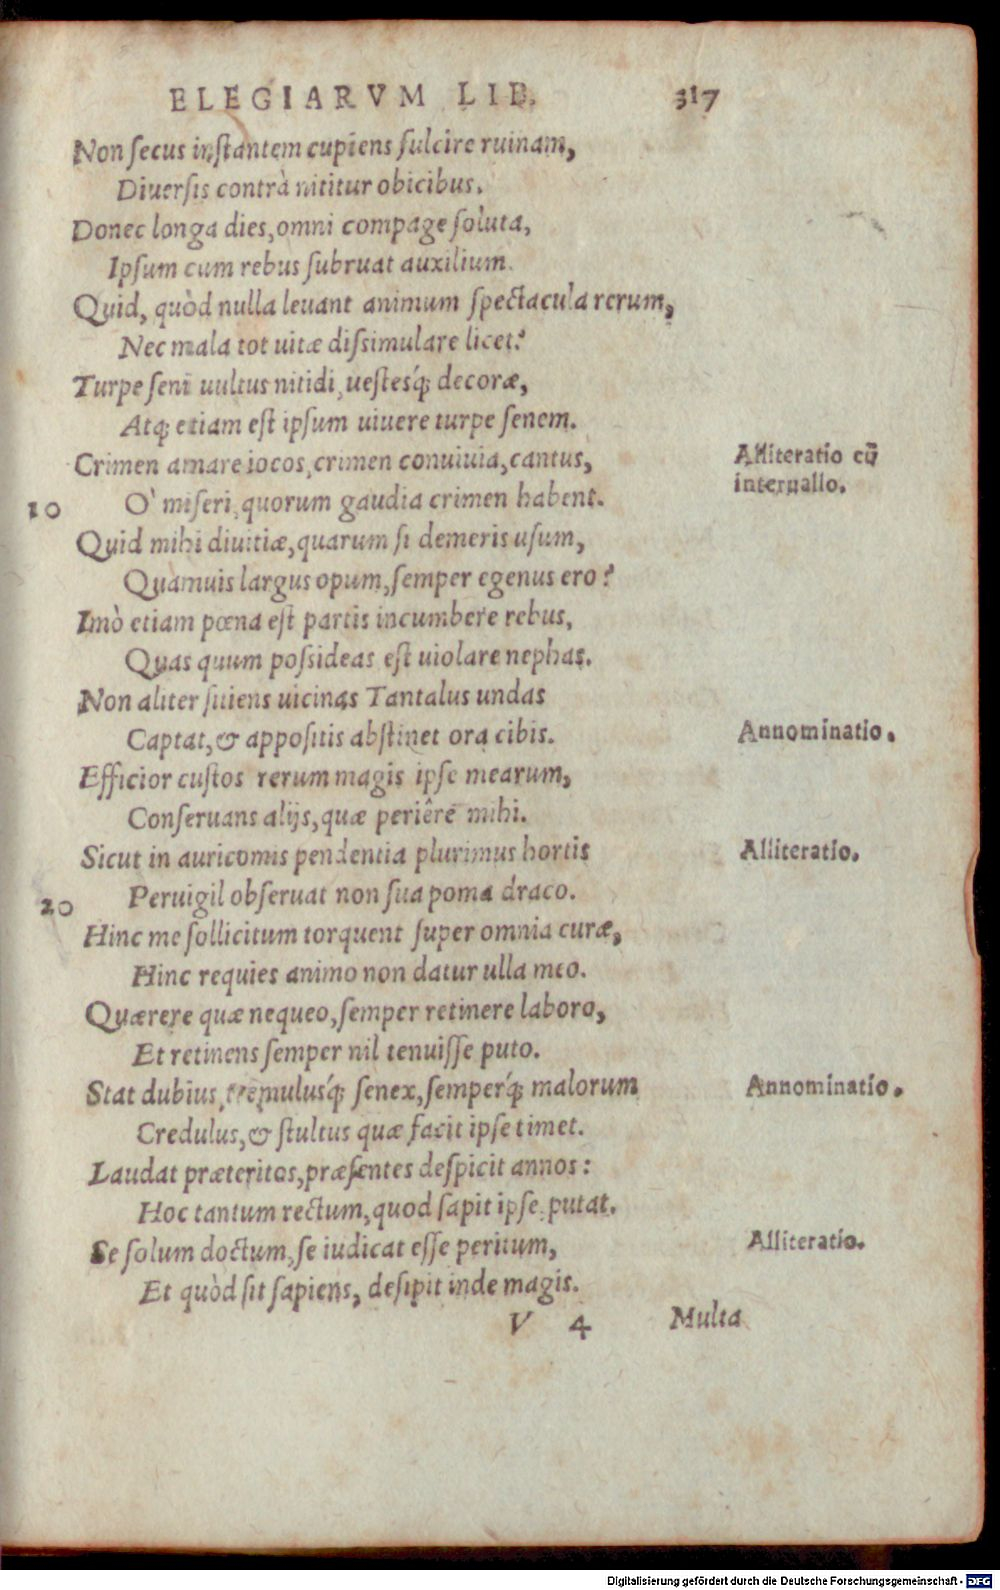 ELEGIARVM LIB. 317
Non ſecus inſtantem cupiens fulcire ruinam,
Diuerſis contrà nititur obicibus.
Donec longa dies, omni compage ſoluta,
Ipſum cum rebus ſubruat auxilium.
Quid, quòd nulla leuant animum ſpectacula rerum,
Nec mala tot uitæ diſsimulare licet?
Turpe ſeni uultus nitidi, ueſtesq́; decoræ,
Atq; etiam eſt ipſum uiuere turpe ſenem.
Crimen amare iocos, crimen conuiuia, cantus,
Alliteratio cũ
interuallo.
10 O' miſeri, quorum gaudia crimen habent.
Quid mihi diuitiæ, quarum ſi demeris uſum,
Quamuis largus opum, ſemper egenus ero?
Imò etiam pœna eſt partis incumbere rebus,
Quas quum poſsideas eſt uiolare nephas.
Non aliter ſitiens uicinas Tantalus undas
Captat, & appoſitis abſtinet ora cibis. Annominatio.
Efficior cuſtos rerum magis ipſe mearum,
Conſeruans alijs, quæ periêre mihi.
Sicut in auricomis pendentia plurimus hortis Alliteratio.
20 Peruigil obſeruat non ſua poma draco.
Hinc me ſollicitum torquent ſuper omnia curæ,
Hinc requies animo non datur ulla meo.
Quærere quæ nequeo, ſemper retinere laboro,
Et retinens ſemper nil tenuiſſe puto.
Stat dubius, tremulusq́; ſenex, ſemperq́; malorum Annominatio.
Credulus, & ſtultus quæ facit ipſe timet.
Laudat præteritos, præſentes deſpicit annos:
Hoc tantum rectum, quod ſapit ipſe putat.
Se ſolum doctum, ſe iudicat eſſe peritum, Alliteratio.
Et quòd ſit ſapiens, deſipit inde magis.
V 4 Multa
Digitalisierung gefördert durch die Deutsche Forschungsgemeinschaft - DFG